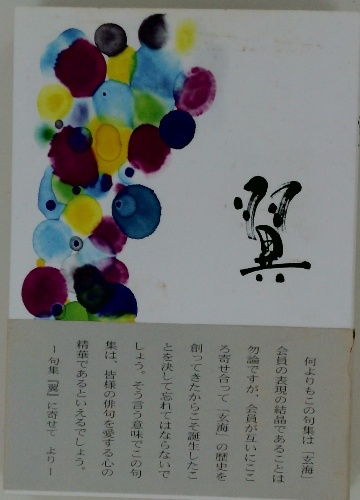 翼
何よりもこの句集は「玄海」
会員の表現の結晶であることは
勿論ですが、会員が互いにここ
ろ寄せ合って「玄海」の歴史を
創ってきたからこそ誕生したこ
とを決して忘れてはならないで
しょう。そう言う意味でこの句
集は、皆様の俳句を愛する心の
精華であるといえるでしょう。
ー句集『翼』に寄せて よりー